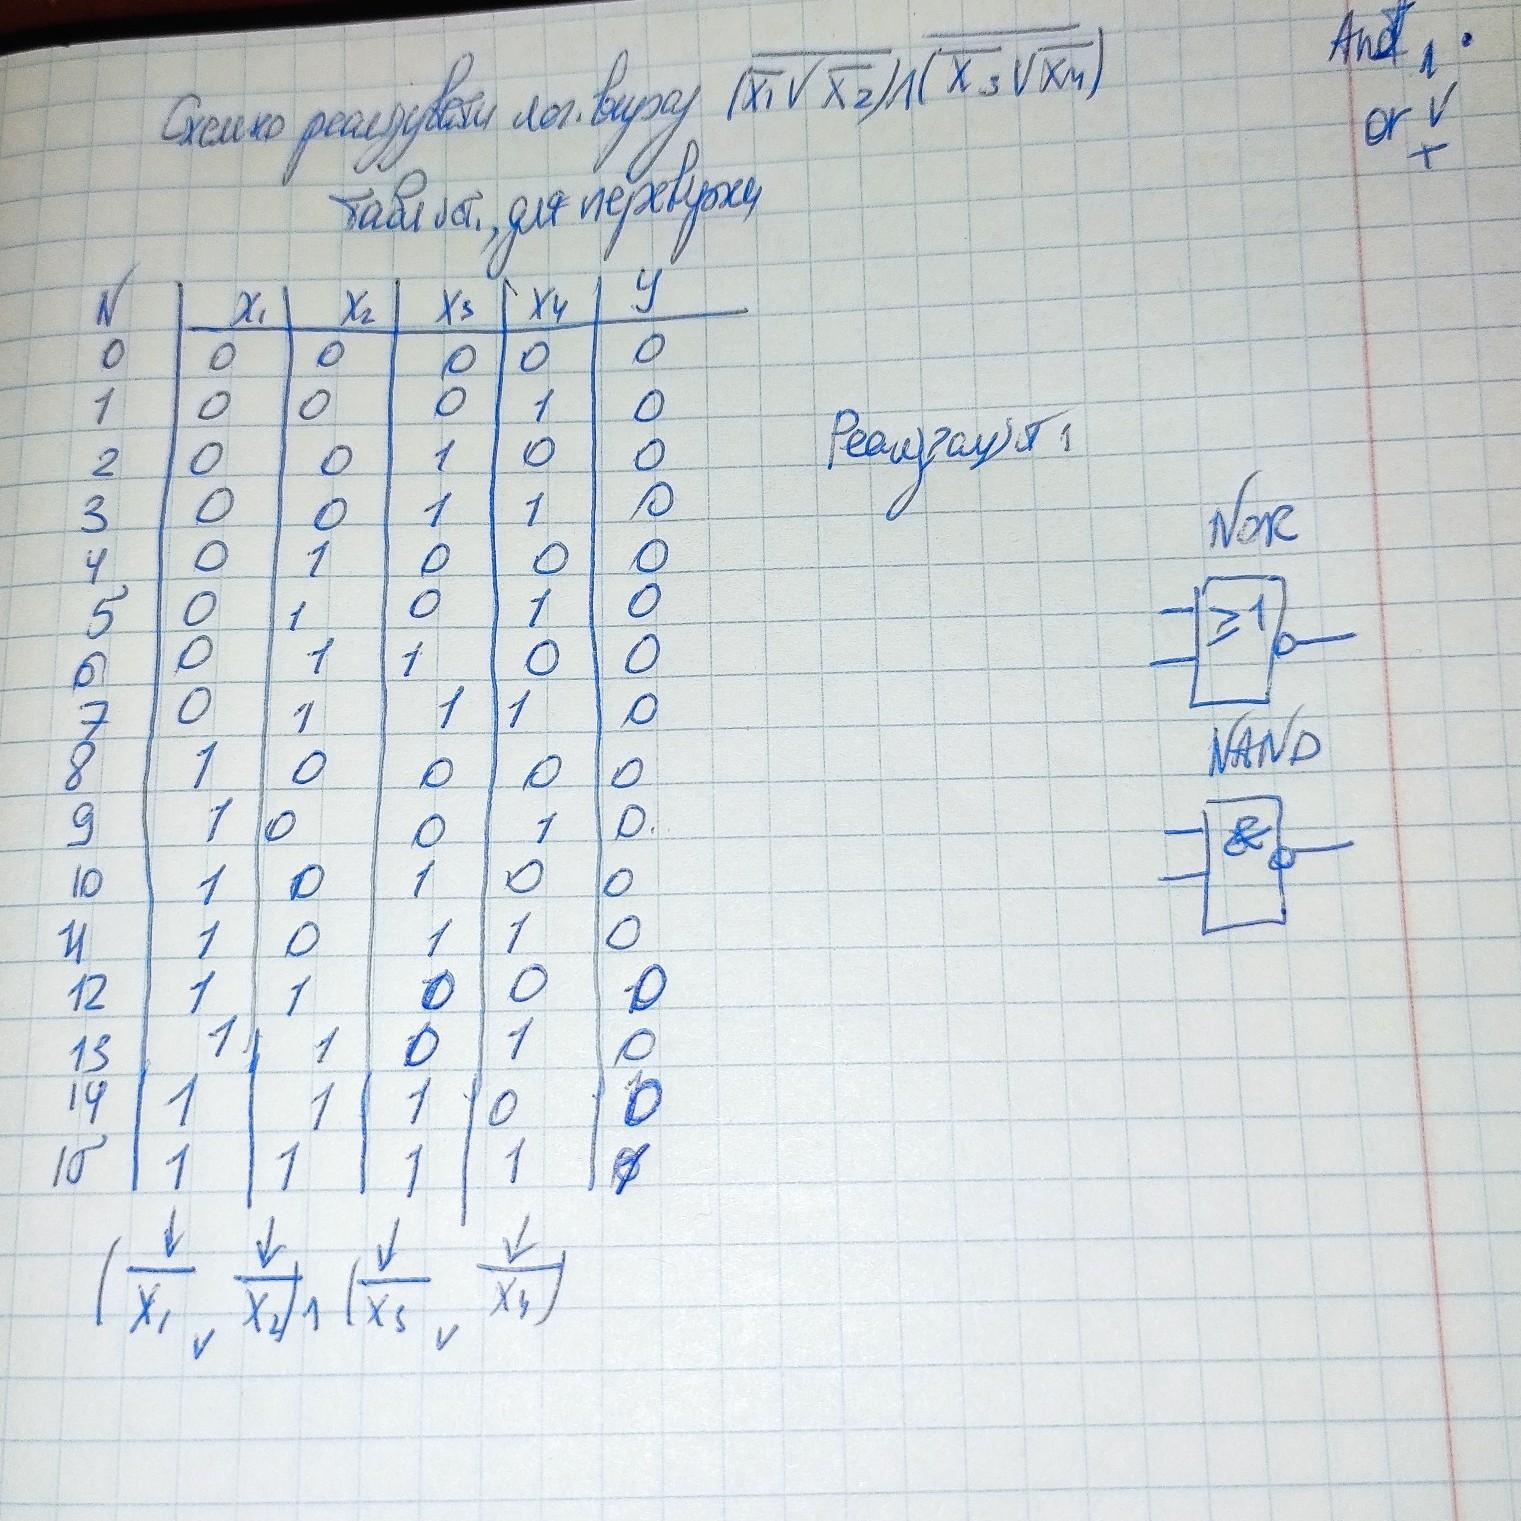 Схемно реалізувати лог. вираз (x̅₁ ∨ x̅₂) ∧ (x̅₃ ∨ x̅₄)
And ∧ ·
or ∨ +
таб. іст., для перевірки
N x₁ x₂ x₃ x₄ y
0 0 0 0 0 0
1 0 0 0 1 0
2 0 0 1 0 0
3 0 0 1 1 0
4 0 1 0 0 0
5 0 1 0 1 0
6 0 1 1 0 0
7 0 1 1 1 0
8 1 0 0 0 0
9 1 0 0 1 0.
10 1 0 1 0 0
11 1 0 1 1 0
12 1 1 0 0 0
13 1 1 0 1 0
14 1 1 1 0 0
15 1 1 1 1
Реалізація
NOR
≥1
NAND
&
↓ ↓ ↓ ↓
(x̅₁ ∨ x̅₂) ∧ (x̅₃ ∨ x̅₄)